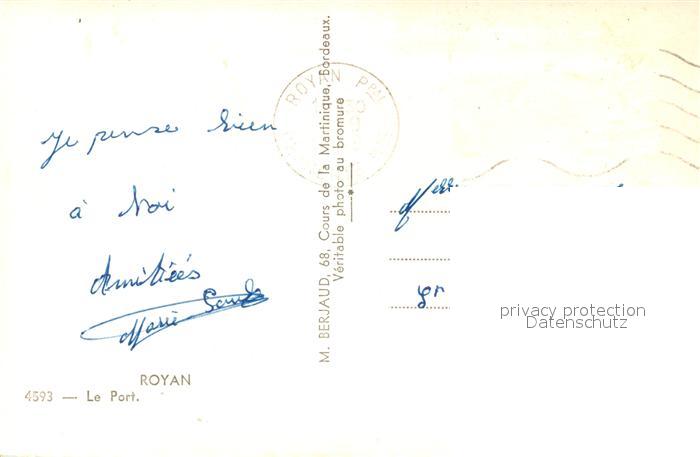 Je pense bien
à toi
Amitiées
Marie
ROYAN
4593 — Le Port.
M. BERJAUD, 68, Cours de la Martinique, Bordeaux.
Véritable photo au bromure
ROYAN Ppal
privacy protection
Datenschutz